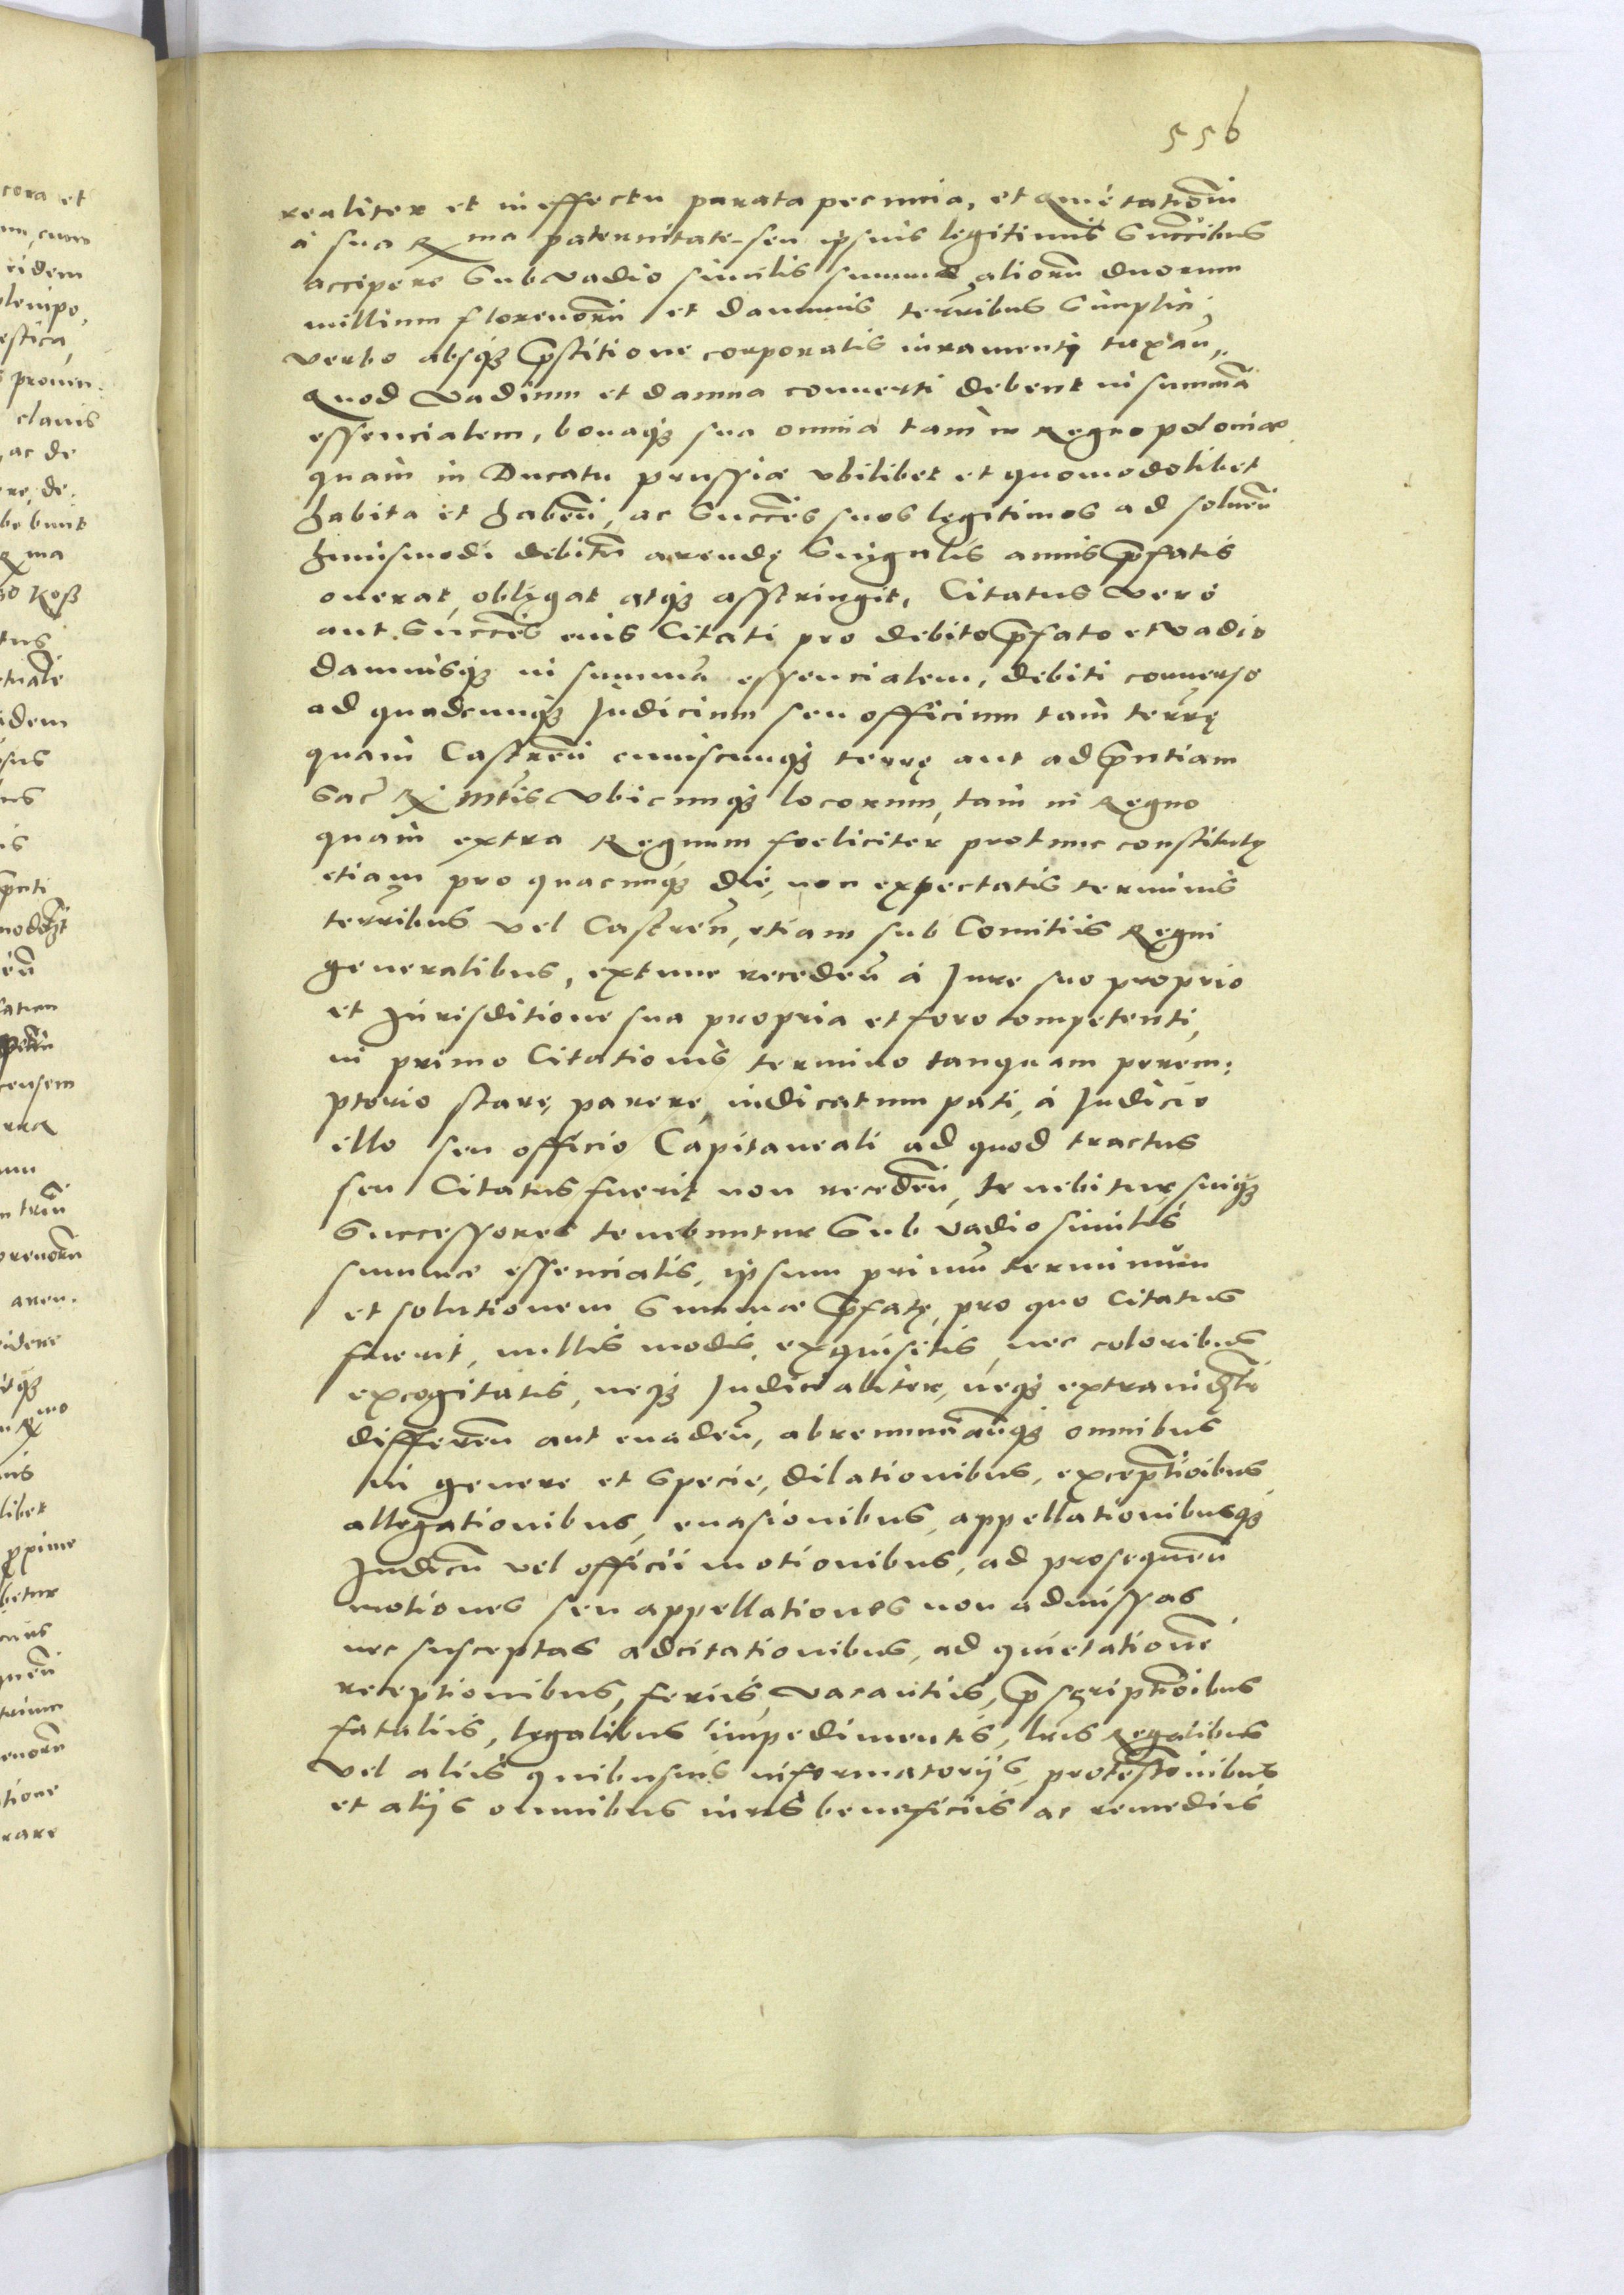 556
realiter et in effectu parata pecunia, et Quietationem
a sua Rma paternitate seu ipsius legitimis Succibus
accipere Sub vadio similis summae aliorum duorum
millium florenorum et damnis terribus simplici
verbo absque pstitione corporalis iuramenti taxan.
Quod vadium et damna conuerti debent in summam
essencialem, bonaque sua omnia tam in Regno poloniae
quam in Ducatu prussiae vbilibet et quomodolibet
habita et haben, ac Succes suos legitimos ad soluen
huiusmodi debitum arendę Singulis annis pfatis
onerat, obligat atque asstringit, Citatus vero
aut Succes eius Citati pro debito pfato et vadio
damnisque in summam essencialem, debiti conuerso
ad quodcunque Judicium seu officium tam terrę
quam Castren cuiuscunque terrę aut ad pntiam
Sac R Mtis vbicunque locorum, tam in Regno
quam extra Regnum foeliciter protunc constitutę
etiam pro quacunque die, non expectatis terminis
terribus vel Castren, etiam sub Comitiis Regni
generalibus, extunc receden a Jure suo proprio
et Jurisditione sua propria et foro competenti,
in primo Citationis termino tanquam perem-
ptorio stare, parere, iudicatum pati, a Judicio
illo seu officio Capitaneali ad quod tractus
seu Citatus fuerit non receden, tenebitur, suique
Successores tenebuntur Sub vadio similis
summae essencialis, ipsum primum terminum
et solutionem Summae pfatę, pro quo Citatus
fuerit, nullis modis, exquisitis, nec coloribus
excogitatis, neque Judicialiter, neque extraiudlr
differen aut euaden, abrenunanque omnibus
in genere et Specie, dilationibus, exceptioibus
allegationibus, euasionibus, appellationibusque
Judicum vel officii motionibus, ad prosequen
motiones seu appellationes non admissas
nec susceptas adcitationibus, ad quietatione
receptionibus, feriis, vacantiis, pscriptioibus
fataliis, legalibus impedimentis, lris Regalibus
vel aliis quibusuis informatoriis, protestonibus
et aliis omnibus iuris beneficiis ac remediis